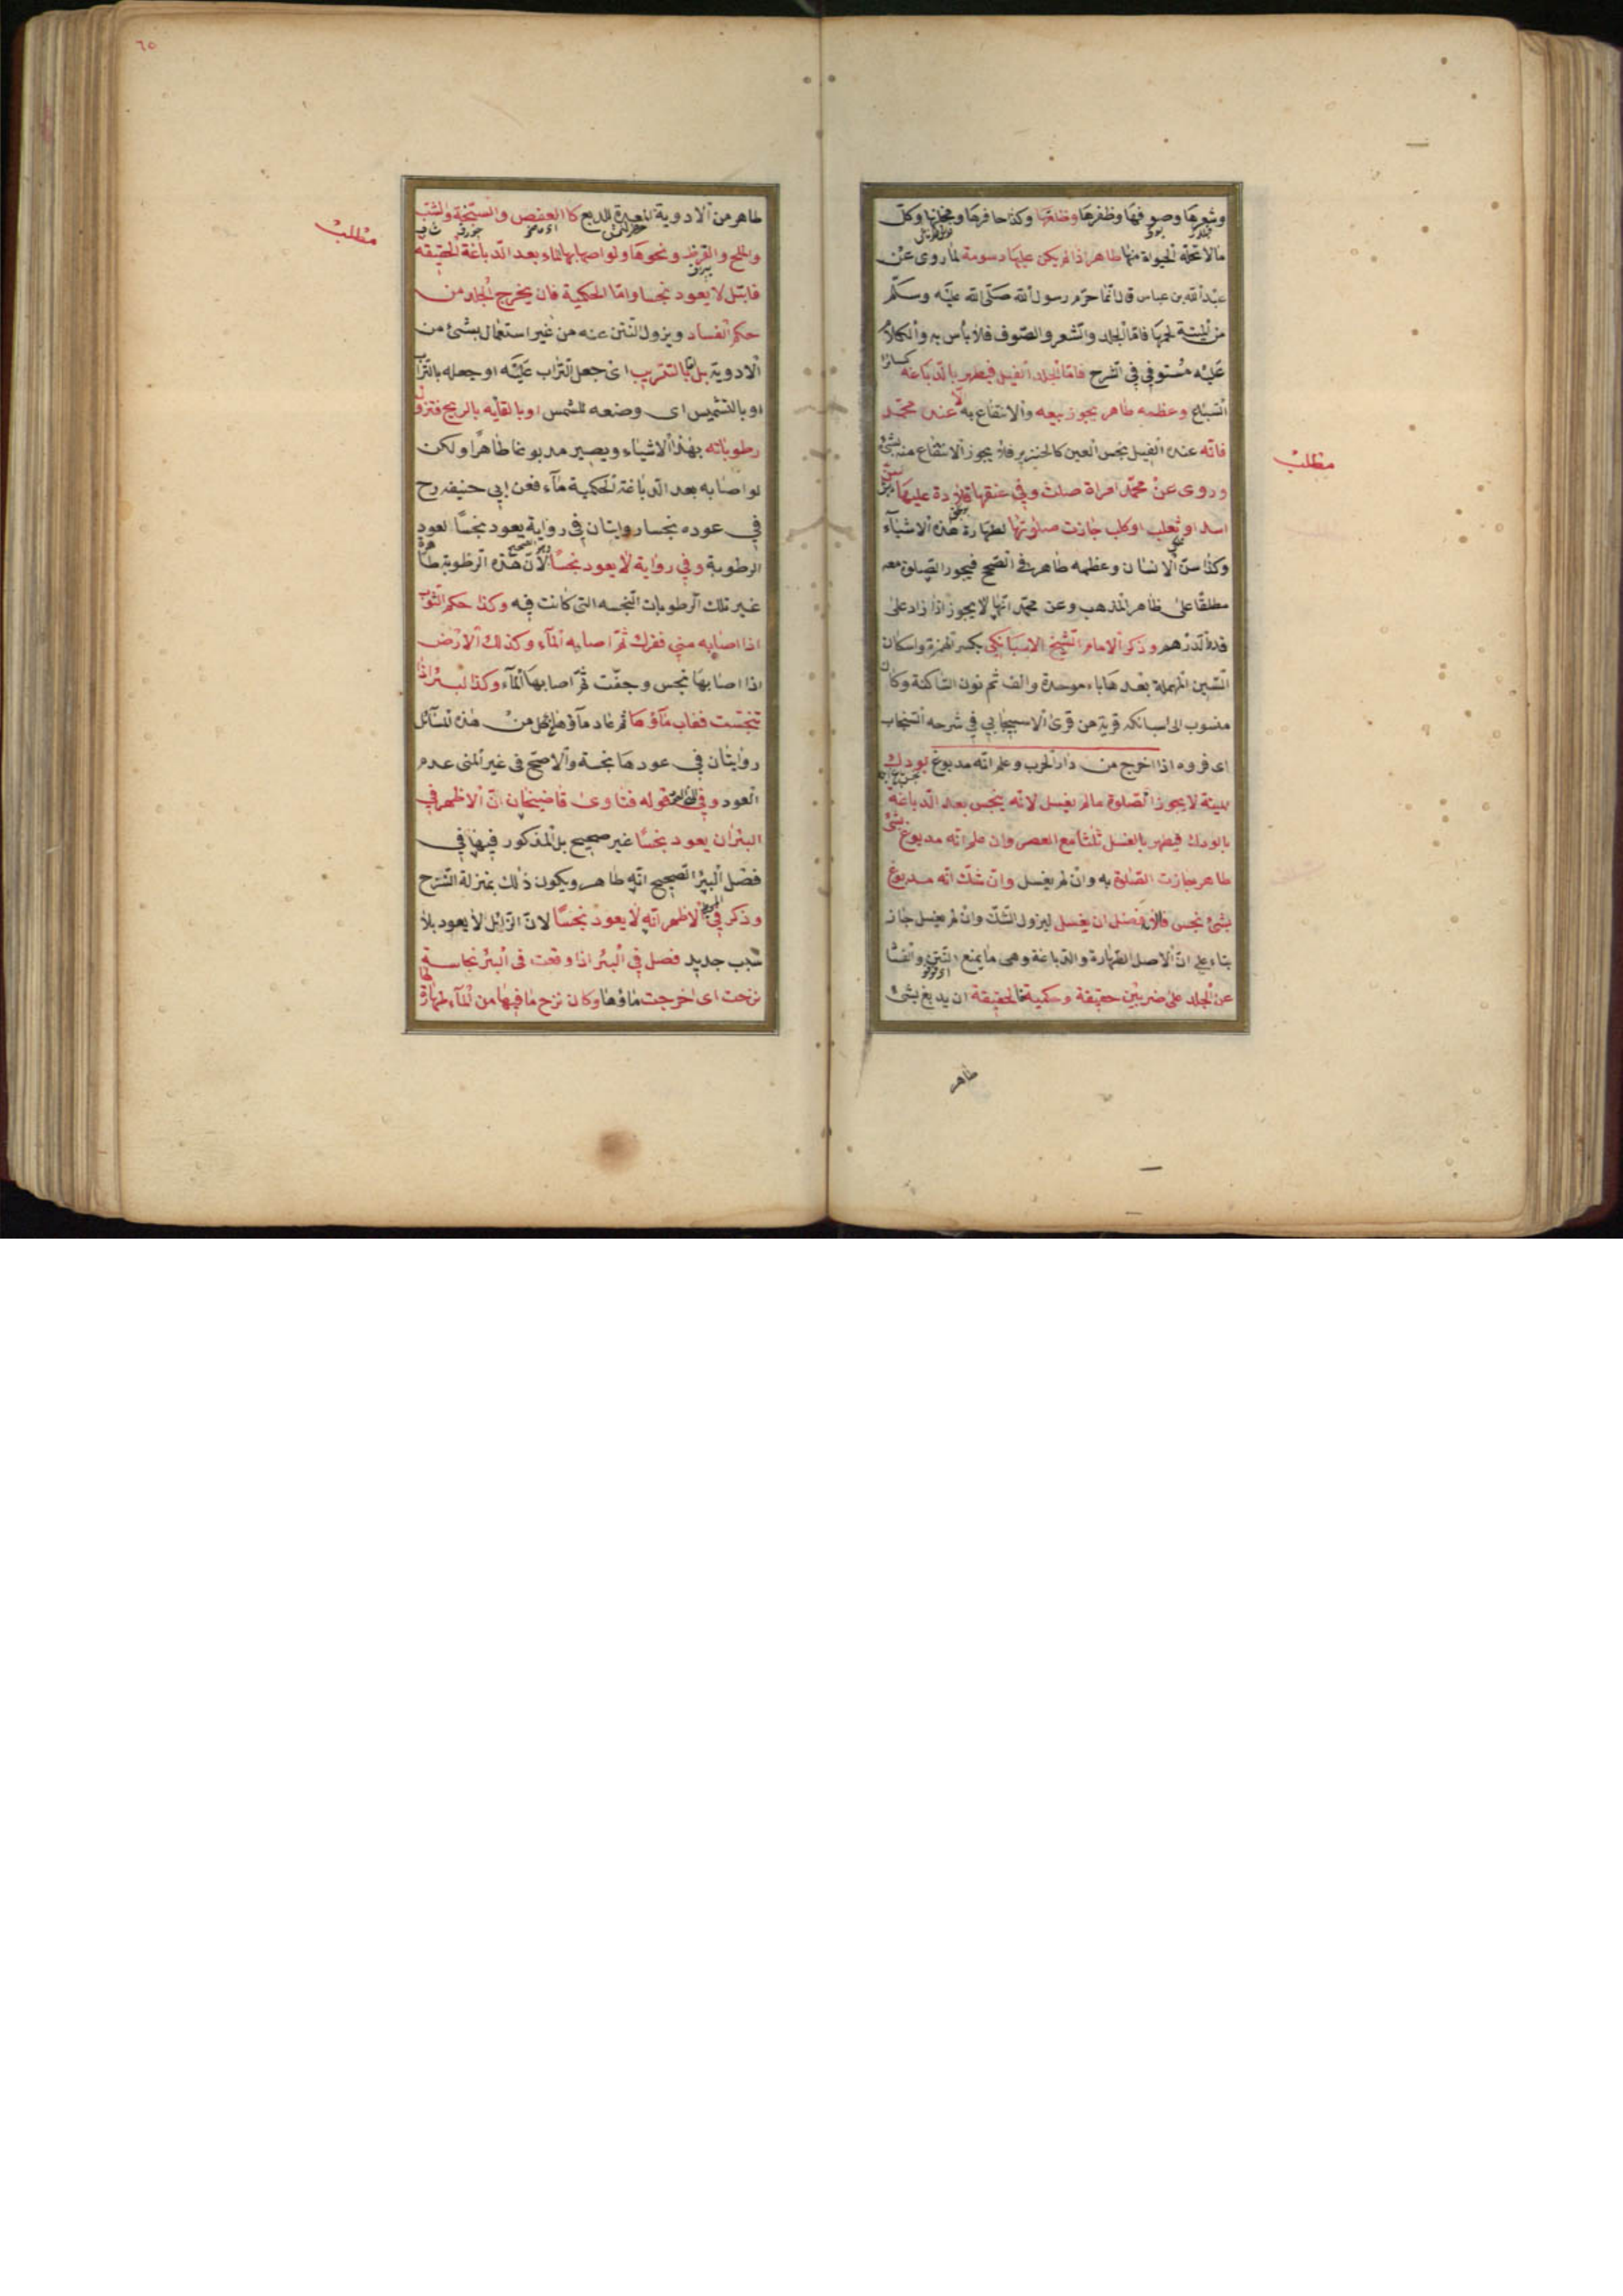 وشعرها وصوفها وظفرها وظلفها وكذا حافرها ومخلبها وكل
مالا تحله الحيوة منها طاهر اذا لم يكن عليها دسومة لما روى عن
عبد الله بن عباس قال انما حرم رسول الله صلى الله عليه وسلم
من الميتة لحمها فاما الجلد والشعر والصوف فلا بأس به والكلام
عليه مستوفى في الشرح فاما الجلد الفيل فيطهر بالدباغة كسائر
السباع وعظمه طاهر يجوز بيعه والانتفاع به لا عند محمد
فانه عنده الفيل نجس العين كالخنزير فلا يجوز الانتفاع منه بشئ
وروى عن محمد امراة صلت وفي عنقها قلادة عليها سن
اسد او ثعلب او كلب جازت صلوتها لطهارة هذه الاشياء
وكذا سن الانسان وعظمه طاهر في الصحيح فيجوز الصلوة معه
مطلقا على ظاهر المذهب وعن محمد انها لا يجوز اذا زاد على
قدر الدرهم وذكر الامام الشيخ الاسبانيكي بكسر الهمزة واسكان
السين المهملة بعدها باء موحدة والف ثم نون الساكنة وكاف
منسوب الى اسبانكه قرية من قرى الاسبيجابي في شرحه السنجاب
اى فروه اذا اخرج من دار الحرب وعلم انه مدبوغ بودك
ميتة لا يجوز الصلوة مالم يغسل لانه ينجس بعد الدباغة
بالودك فيطهر بالغسل ثلثا مع العصر وان علم انه مدبوغ بشئ
طاهر جازت الصلوة به وان لم يغسل وان شك انه مدبوغ
بشئ نجس فالافضل ان يغسل ليزول الشك وان لم يغسل جاز
بناء على ان الاصل الطهارة والدباغة وهى ما يمنع النتن والفساد
عن الجلد على ضربين حقيقة وحكمية فالحقيقة ان يدبغ بشئ
طاهر
مطلب
٦٥
طاهر من الادوية المعدة للدبغ كالعفص والسبخة والشب
والملح والقرظ ونحوها ولو اصابها الماء بعد الدباغة الحقيقة
فابتل لا يعود نجسا واما الحكمية فان يخرج الجلد من
حكم الفساد ويزول النتن عنه من غير استعمال بشئ من
الادوية بل بالتتريب اى جعل التراب عليه او جعله بالتراب
او بالتشميس اى وضعه للشمس او بالقايه بالريح فتزول
رطوباته بهذا الاشياء ويصير مدبوغا طاهرا ولكن
لو اصابه بعد الدباغة الحكمية ماء فعن ابي حنيفه رح
في عوده نجسا روايتان في رواية يعود نجسا لعود
الرطوبة وفي رواية لا يعود نجسا لان هذه الرطوبة طاهرة
غير تلك الرطوبات النجسه التى كانت فيه وكذا حكم الثوب
اذا اصابه مني ففرك ثم اصابه الماء وكذلك الارض
اذا اصابها نجس وجفت ثم اصابها الماء وكذا البئر اذا
تنجست فغاب ماؤها ثم عاد ماؤها فكل من هذه المسائل
روايتان في عودها نجسة والاصح فى غير المنى عدم
العود وفي قوله فتاوى قاضيخان ان الاظهر في
البئر ان يعود نجسا غير صحيح بل المذكور فيها في
فصل البئر الصحيح انه طاهر ويكون ذلك بمنزلة النزح
وذكر في الاظهر انه لا يعود نجسا لان الزائل لا يعود بلا
سبب جديد فصل في البئر اذا وقعت فى البئر نجاسة
نزحت اى اخرجت ماؤها وكان نزح ما فيها من الماء طهارة
مطلب